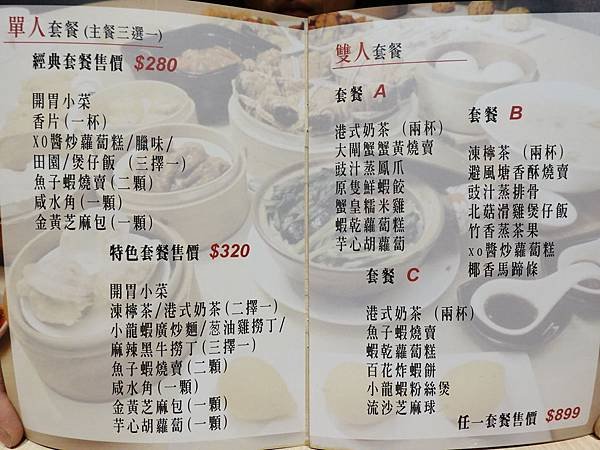 單人套餐(主餐三選一)
經典套餐售價 $280
開胃小菜
香片(一杯)
XO醬炒蘿蔔糕/臘味/
田園/煲仔飯(三擇一)
魚子蝦燒賣(二顆)
咸水角(一顆)
金黃芝麻包(一顆)
特色套餐售價 $320
開胃小菜
凍檸茶/港式奶茶(二擇一)
小龍蝦廣炒麵/葱油雞撈丁/
麻辣黑牛撈丁(三擇一)
魚子蝦燒賣(二顆)
咸水角(一顆)
金黃芝麻包(一顆)
芋心胡蘿蔔(一顆)
雙人套餐
套餐 A
港式奶茶 (兩杯)
大閘蟹蟹黃燒賣
豉汁蒸鳳爪
原隻鮮蝦餃
蟹皇糯米雞
蝦乾蘿蔔糕
芋心胡蘿蔔
套餐 B
凍檸茶 (兩杯)
避風塘香酥燒賣
豉汁蒸排骨
北菇滑雞煲仔飯
竹香蒸茶果
xo醬炒蘿蔔糕
椰香馬蹄條
套餐 C
港式奶茶 (兩杯)
魚子蝦燒賣
蝦乾蘿蔔糕
百花炸蝦餅
小龍蝦粉絲煲
流沙芝麻球
任一套餐售價 $899